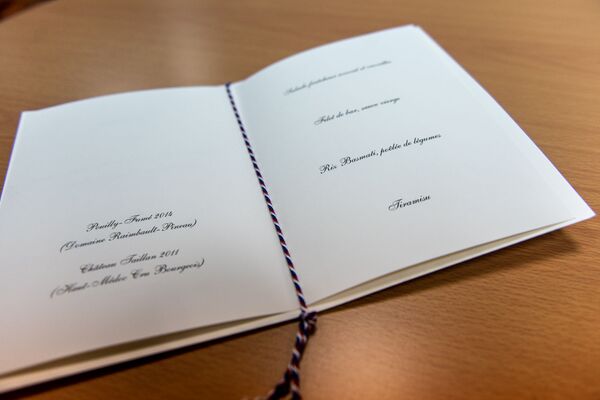 Pouilly-Fumé 2014
(Domaine Raimbault-Pineau)
Château Taillan 2011
(Haut-Médoc Cru Bourgeois)
Salade fraîcheur avocat et crevettes
Filet de bar, sauce vierge
Riz Basmati, poêlée de légumes
Tiramisu